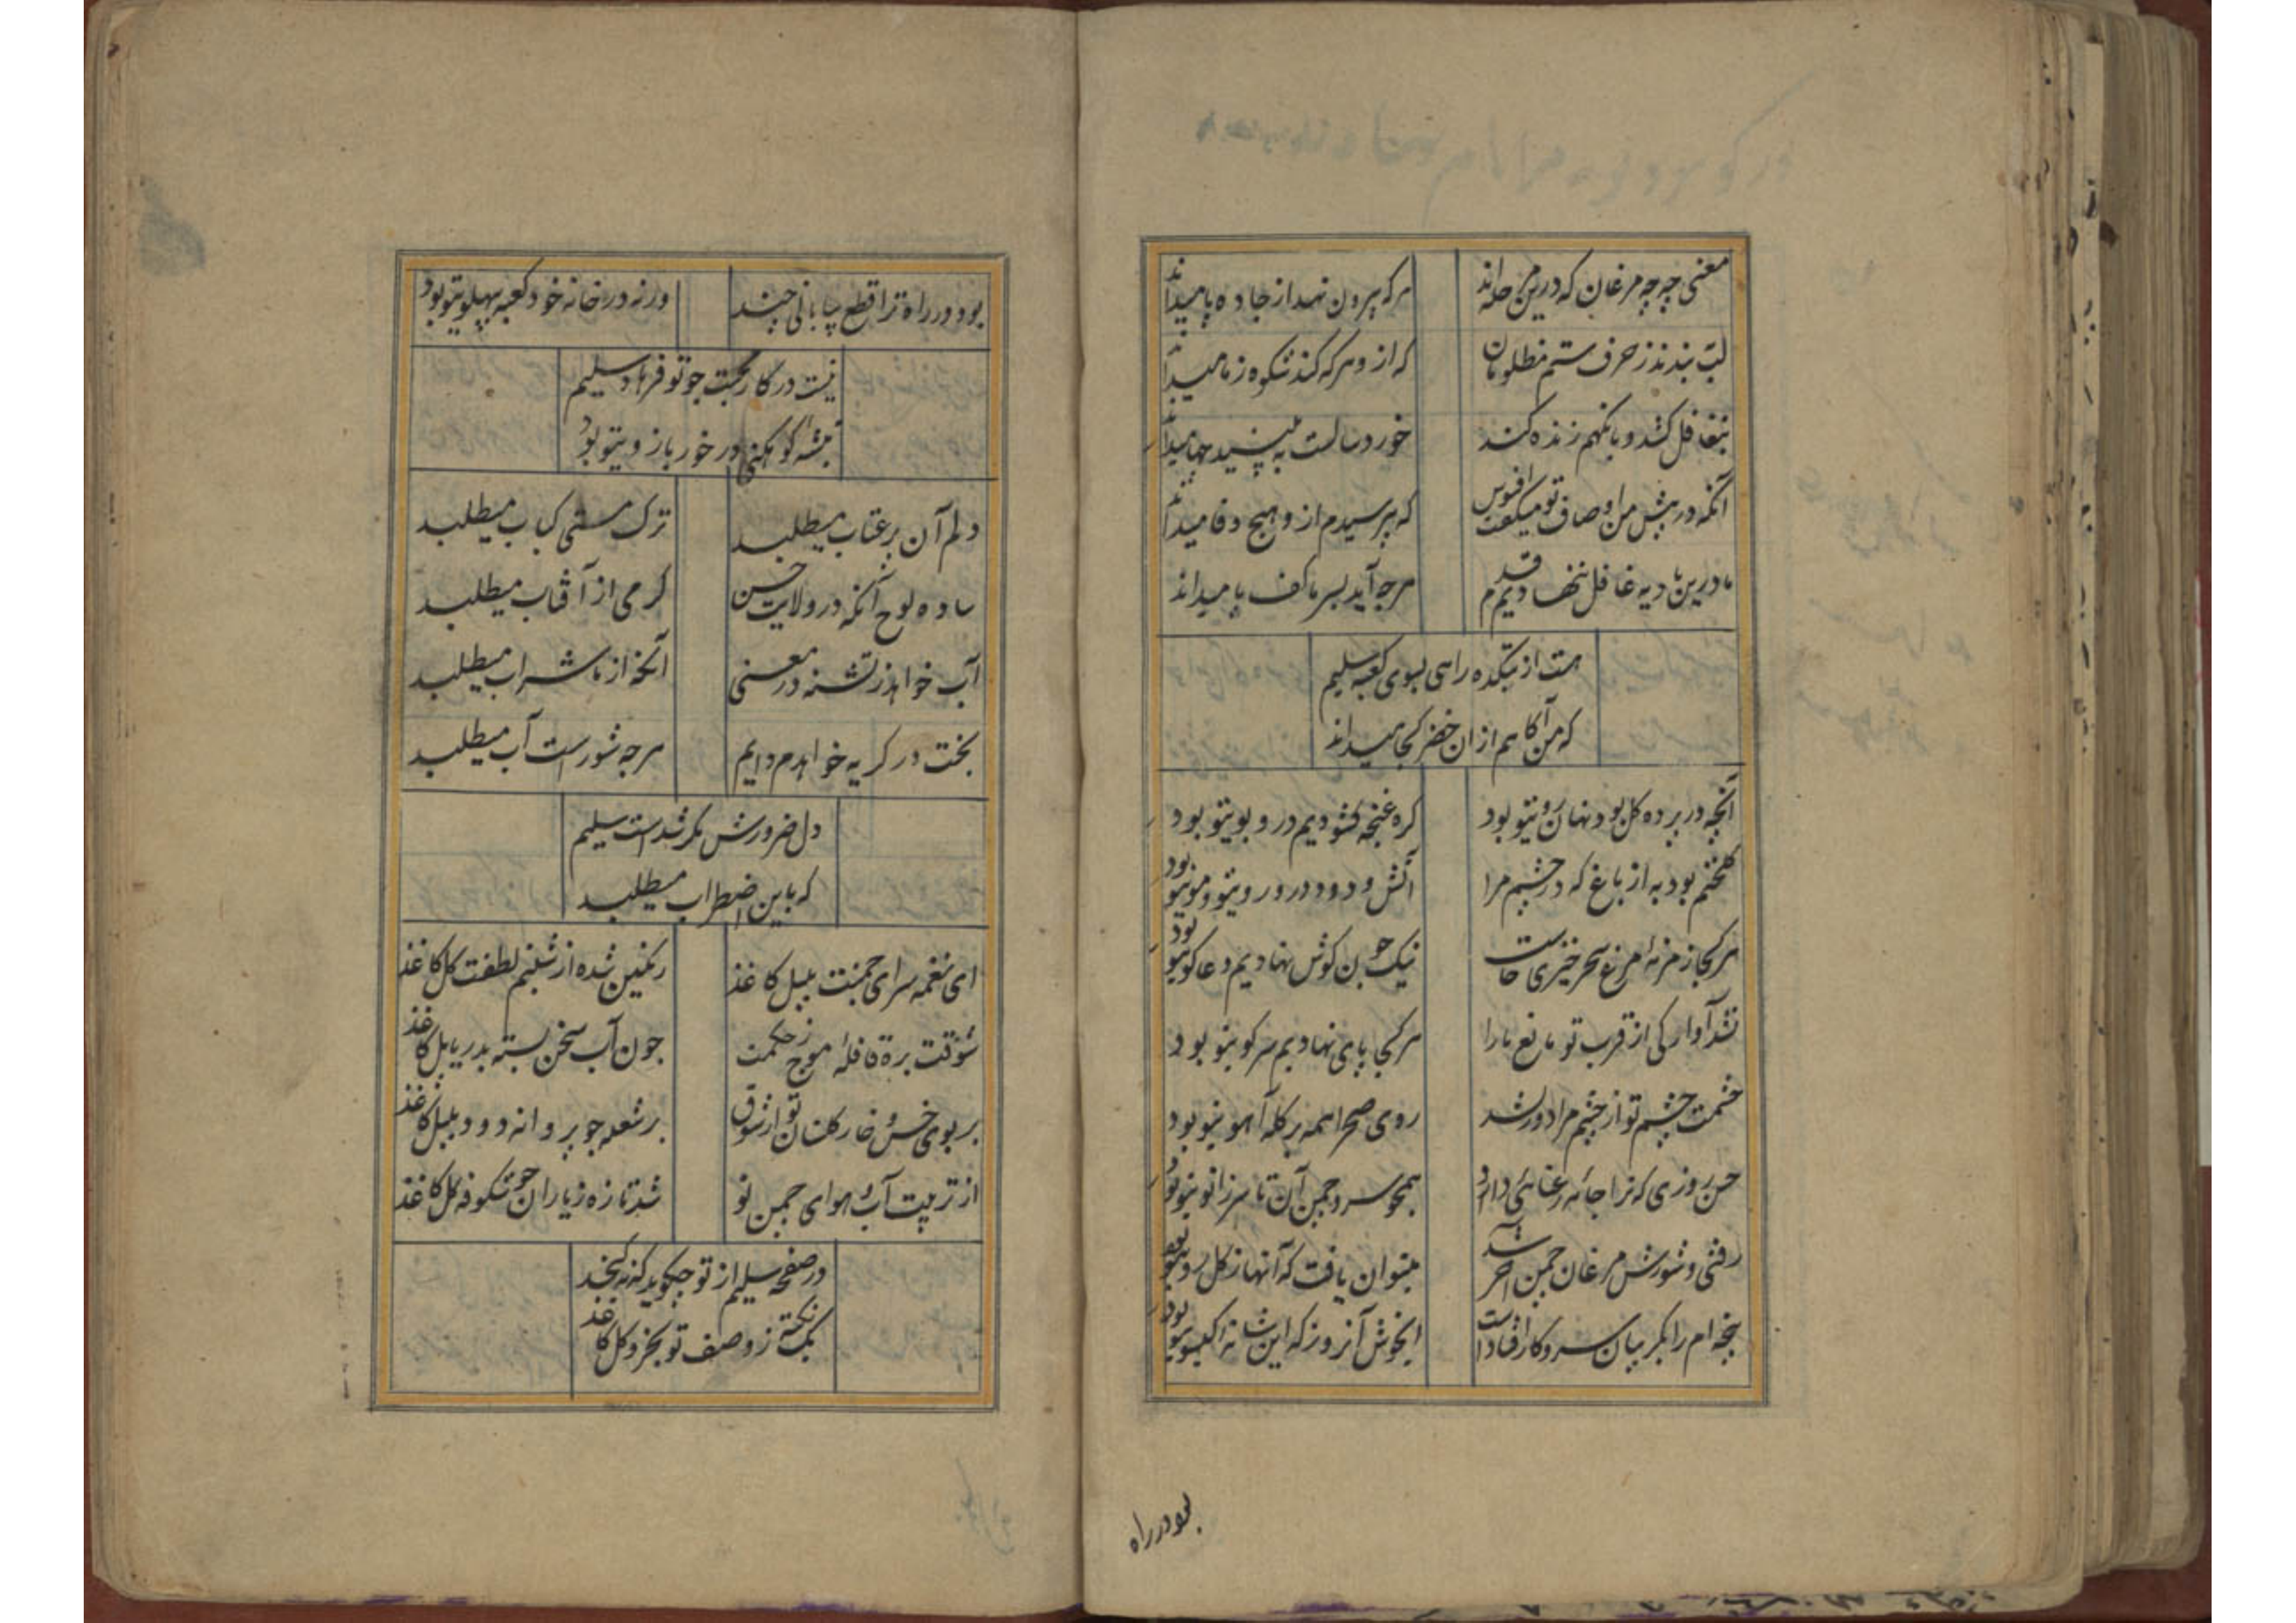 معنی چه چه مرغان که درین مرحله اند
هرکه بیرون نهد از جاده پا میداند
لب ببندند ز حرف ستم مظلومان
که از و هرکه کند شکوه ز ما میداند
بتغافل کشد و بانگهم زنده کند
خورد سالست به بینید چها میداند
آنکه در پیش من اوصاف تو میگفت افسوس
که بپرسیدم از و هیچ وفا میداند
ما درین بادیه غافل ننهادیم قدم
هرچه آید بسر ما کف پا میداند
هست از بتکده راهی بسوی کعبه سلیم
که من آگاهم از ان خضر کجا میداند
آنچه در پرده گل بود نهان روی تو بود
گره غنچه گشودیم درو بوی تو بود
گلخنم بود به از باغ که در چشم مرا
آتش و دود درو روی تو و موی تو بود
هر کجا زمزمهٔ مرغ سحر خیزی خاست
نیک چون گوش نهادیم دعا گوی تو بود
نشد آوارگی از قرب تو مانع ما را
هر کجا پای نهادیم سر کوی تو بود
چشمت چشم تو از چشم مرا دور نشد
روی صحرا همه پر گله آهوی تو بود
حسن روزی که ترا جامه رعنائی داد
همچو سرو چمن آن تا سر زانوی تو بود
رفتی و شورش مرغان چمن آخر شد
میتوان یافت که آنها ز گل روی تو بود
پنجه ام را بگریبان سر و کار افتادست
ایخوش آنروز که این شانه گیسوی تو بود
بود در راه
بود در راه ترا قطع بیابانی چند
ورنه در خانه خود کعبه بپهلوی تو بود
نیست در کار محبت چو تو فرهاد سلیم
تیشه کوهکنی در خور بازوی تو بود
دلم آن پر عتاب میطلبد
ترک مستی کباب میطلبد
ساده لوح آنکه در ولایت حسن
گرمی از آفتاب میطلبد
آب خواهد ز تشنه در معنی
آنکه از ما شراب میطلبد
بخت در گریه خواهدم دایم
هرچه شورست آب میطلبد
دل ضرورش مگر شدست سلیم
که باین اضطراب میطلبد
ای نغمه سرای چمنت بلبل کاغذ
رنگین شده از شبنم لطفت گل کاغذ
شوقت بره قافلهٔ موج ز حکمت
چون آب سخن بسته بدریا پل کاغذ
بر بوی خس و خار گلستان تو از شوق
بر شعله چو پروانه دود بلبل کاغذ
از تربیت آب و هوای چمن تو
شد تازه ز باران چو شکوفه گل کاغذ
در صفحه سلیم از تو چگوید که نگنجد
یک نکته ز وصف تو بجزو کل کاغذ